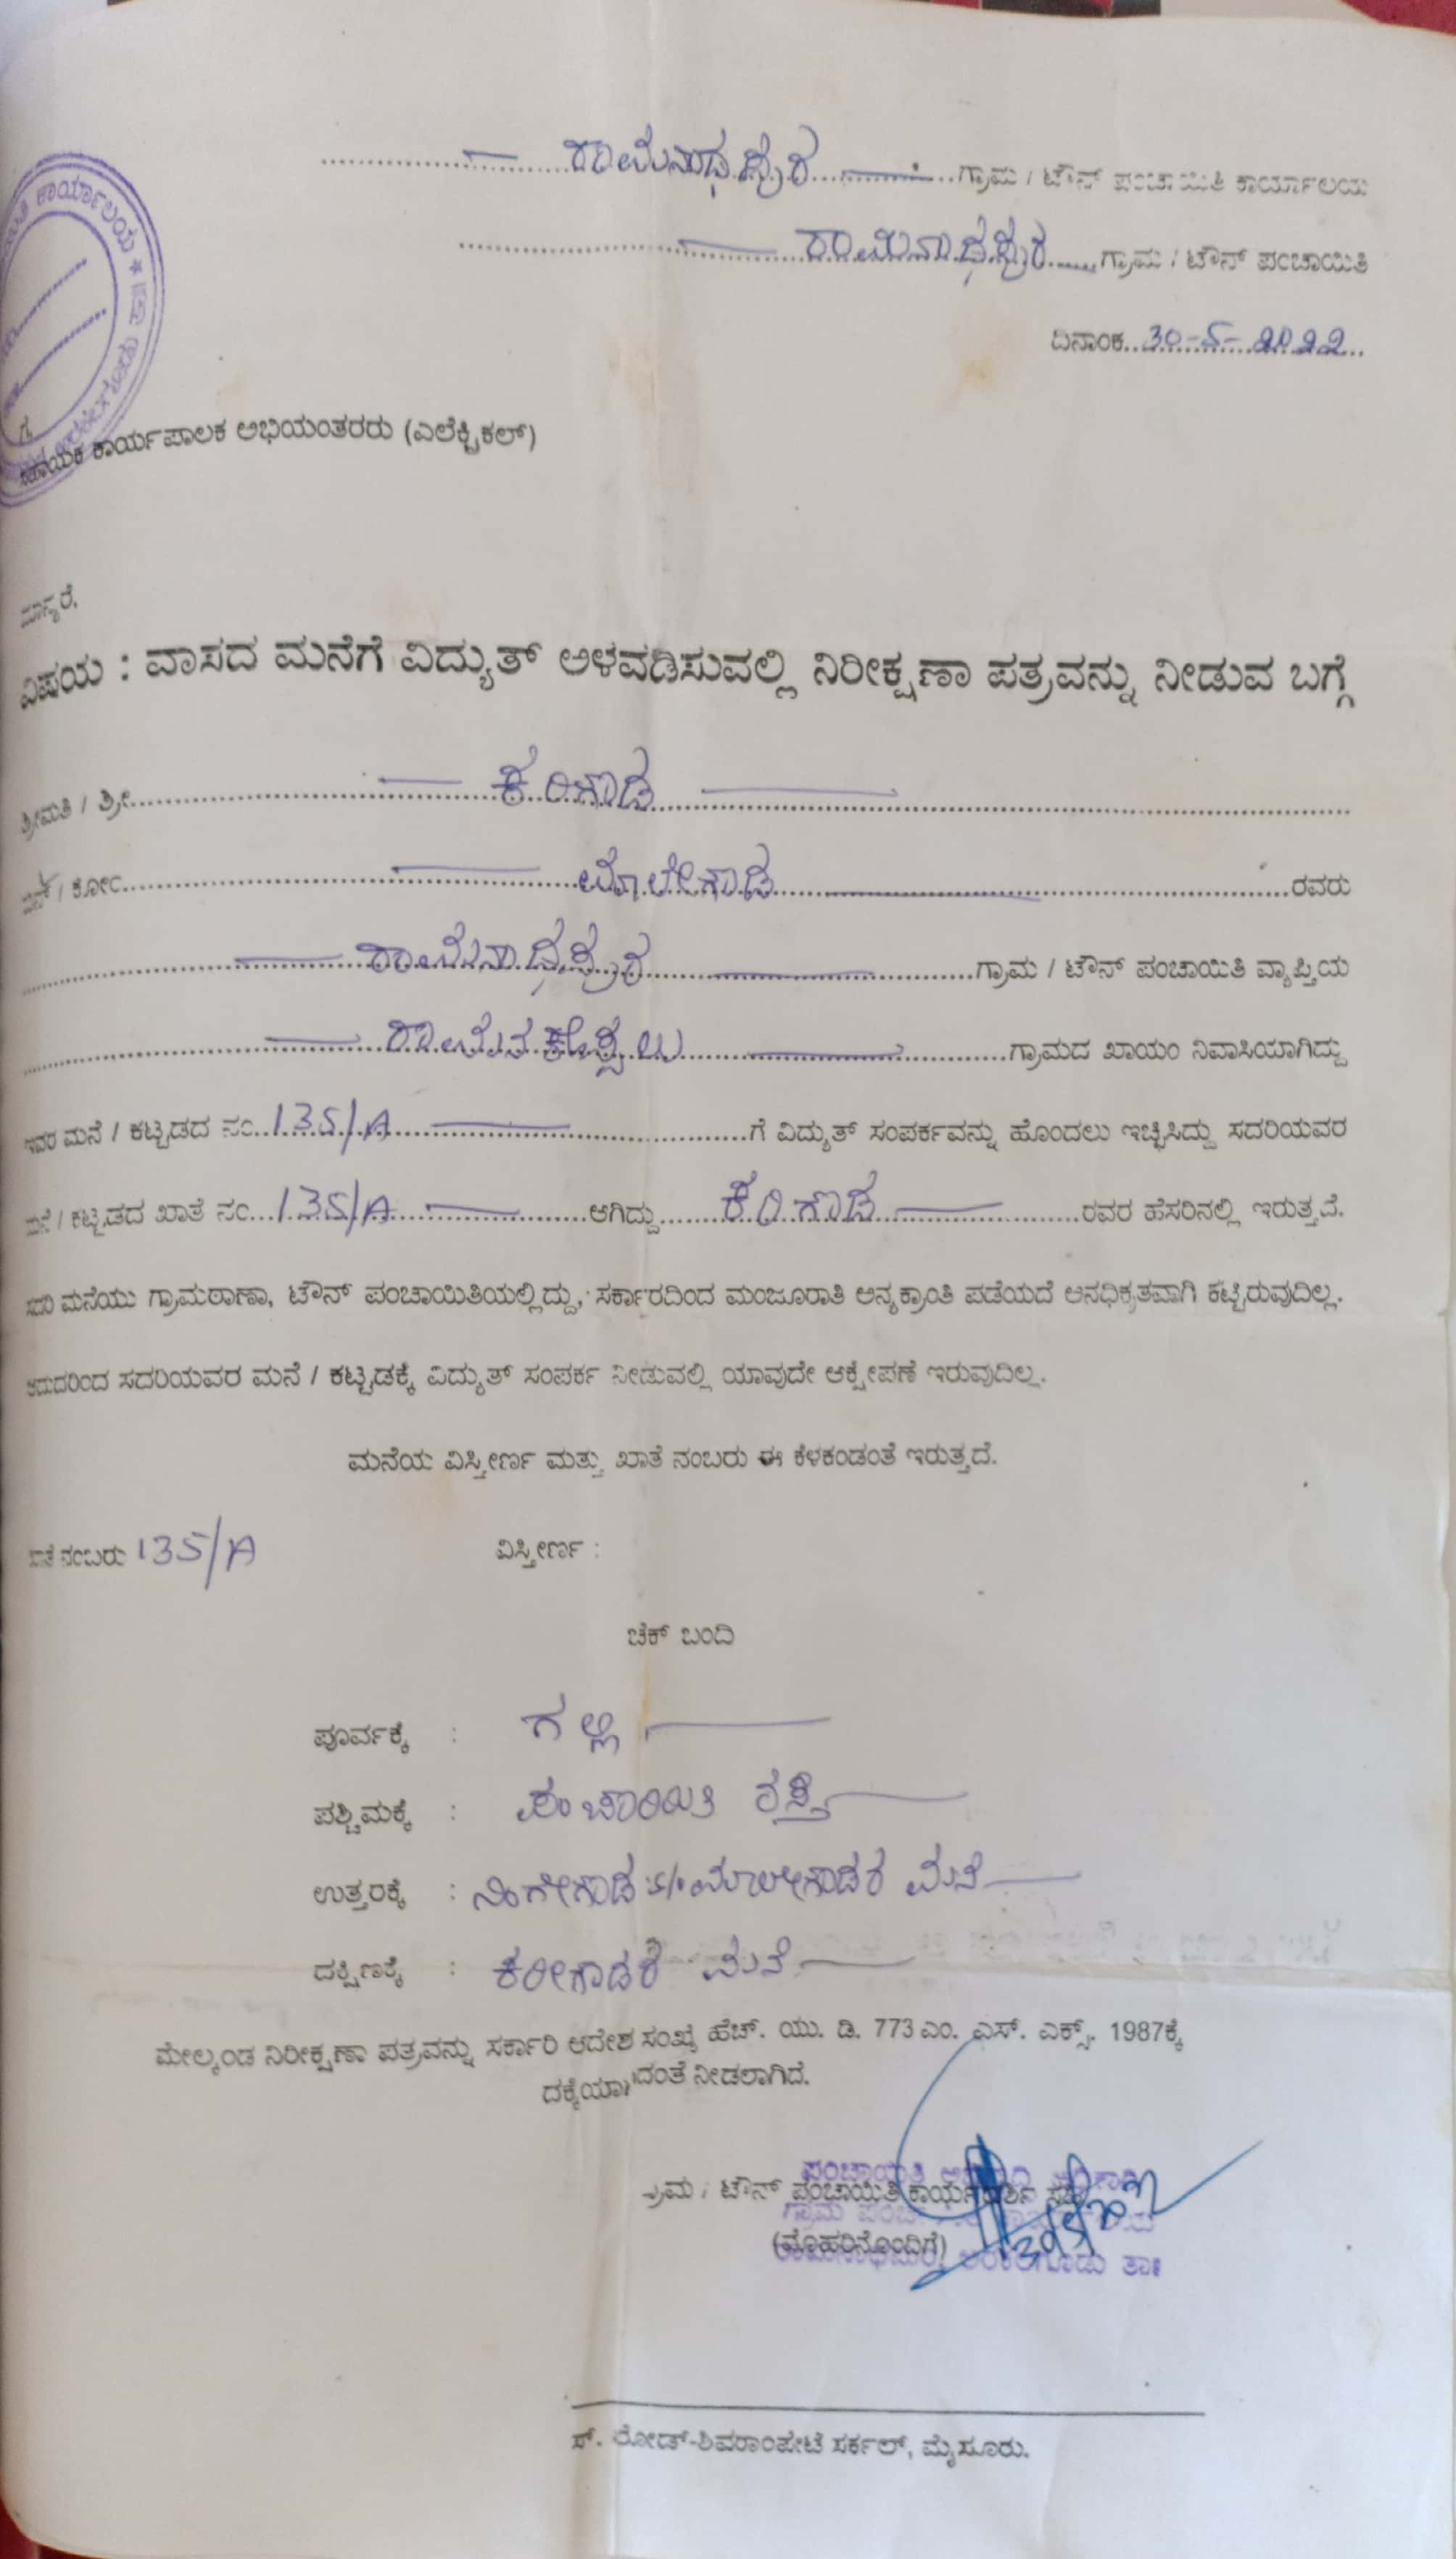 ರಾಮನಾಥಪುರ ಗ್ರಾಮ / ಟೌನ್ ಪಂಚಾಯಿತಿ ಕಾರ್ಯಾಲಯ
ರಾಮನಾಥಪುರ ಗ್ರಾಮ / ಟೌನ್ ಪಂಚಾಯಿತಿ
ದಿನಾಂಕ 30-5-2022
ಕಾರ್ಯಾಲಯ ★
ಸಹಾಯಕ ಕಾರ್ಯಪಾಲಕ ಅಭಿಯಂತರರು (ಎಲೆಕ್ಟ್ರಿಕಲ್)
ಮಾನ್ಯರೆ,
ವಿಷಯ : ವಾಸದ ಮನೆಗೆ ವಿದ್ಯುತ್ ಅಳವಡಿಸುವಲ್ಲಿ ನಿರೀಕ್ಷಣಾ ಪತ್ರವನ್ನು ನೀಡುವ ಬಗ್ಗೆ
ಶ್ರೀಮತಿ / ಶ್ರೀ ಕರಿಗೌಡ
ಬಿನ್ / ಕೋಂ ಮೊಲೇಗೌಡ ರವರು
ರಾಮನಾಥಪುರ ಗ್ರಾಮ / ಟೌನ್ ಪಂಚಾಯಿತಿ ವ್ಯಾಪ್ತಿಯ
ರಾಮನ ಕೊಪ್ಪಲು ಗ್ರಾಮದ ಖಾಯಂ ನಿವಾಸಿಯಾಗಿದ್ದು
ಇವರ ಮನೆ / ಕಟ್ಟಡದ ನಂ 135/A ಗೆ ವಿದ್ಯುತ್ ಸಂಪರ್ಕವನ್ನು ಹೊಂದಲು ಇಚ್ಛಿಸಿದ್ದು ಸದರಿಯವರ
ಮನೆ / ಕಟ್ಟಡದ ಖಾತೆ ನಂ 135/A ಆಗಿದ್ದು ಕರಿಗೌಡ ರವರ ಹೆಸರಿನಲ್ಲಿ ಇರುತ್ತದೆ.
ಸದರಿ ಮನೆಯು ಗ್ರಾಮಠಾಣಾ, ಟೌನ್ ಪಂಚಾಯಿತಿಯಲ್ಲಿದ್ದು, ಸರ್ಕಾರದಿಂದ ಮಂಜೂರಾತಿ ಅನ್ಯಕ್ರಾಂತಿ ಪಡೆಯದೆ ಅನಧಿಕೃತವಾಗಿ ಕಟ್ಟಿರುವುದಿಲ್ಲ.
ಆದುದರಿಂದ ಸದರಿಯವರ ಮನೆ / ಕಟ್ಟಡಕ್ಕೆ ವಿದ್ಯುತ್ ಸಂಪರ್ಕ ನೀಡುವಲ್ಲಿ ಯಾವುದೇ ಆಕ್ಷೇಪಣೆ ಇರುವುದಿಲ್ಲ.
ಮನೆಯ ವಿಸ್ತೀರ್ಣ ಮತ್ತು ಖಾತೆ ನಂಬರು ಈ ಕೆಳಕಂಡಂತೆ ಇರುತ್ತದೆ.
ಖಾತೆ ನಂಬರು 135/A ವಿಸ್ತೀರ್ಣ :
ಚೆಕ್ ಬಂದಿ
ಪೂರ್ವಕ್ಕೆ : ಗಲ್ಲಿ
ಪಶ್ಚಿಮಕ್ಕೆ : ಪಂಚಾಯಿತಿ ರಸ್ತೆ
ಉತ್ತರಕ್ಕೆ : ನಿಂಗೇಗೌಡ s/o ಮಾಲೇಗೌಡರ ಮನೆ
ದಕ್ಷಿಣಕ್ಕೆ : ಕರೀಗೌಡರ ಮನೆ
ಮೇಲ್ಕಂಡ ನಿರೀಕ್ಷಣಾ ಪತ್ರವನ್ನು ಸರ್ಕಾರಿ ಆದೇಶ ಸಂಖ್ಯೆ ಹೆಚ್. ಯು. ಡಿ. 773 ಎಂ. ಎಸ್. ಎಕ್ಸ್. 1987ಕ್ಕೆ
ದಕ್ಕೆಯಾಗದಂತೆ ನೀಡಲಾಗಿದೆ.
ಟೌನ್ ಪಂಚಾಯಿತಿ ಕಾರ್ಯದರ್ಶಿ ಸಹಿ
(ಮೊಹರಿನೊಂದಿಗೆ)
30/5/2022
ರೋಡ್-ಶಿವರಾಂಪೇಟೆ ಸರ್ಕಲ್, ಮೈಸೂರು.